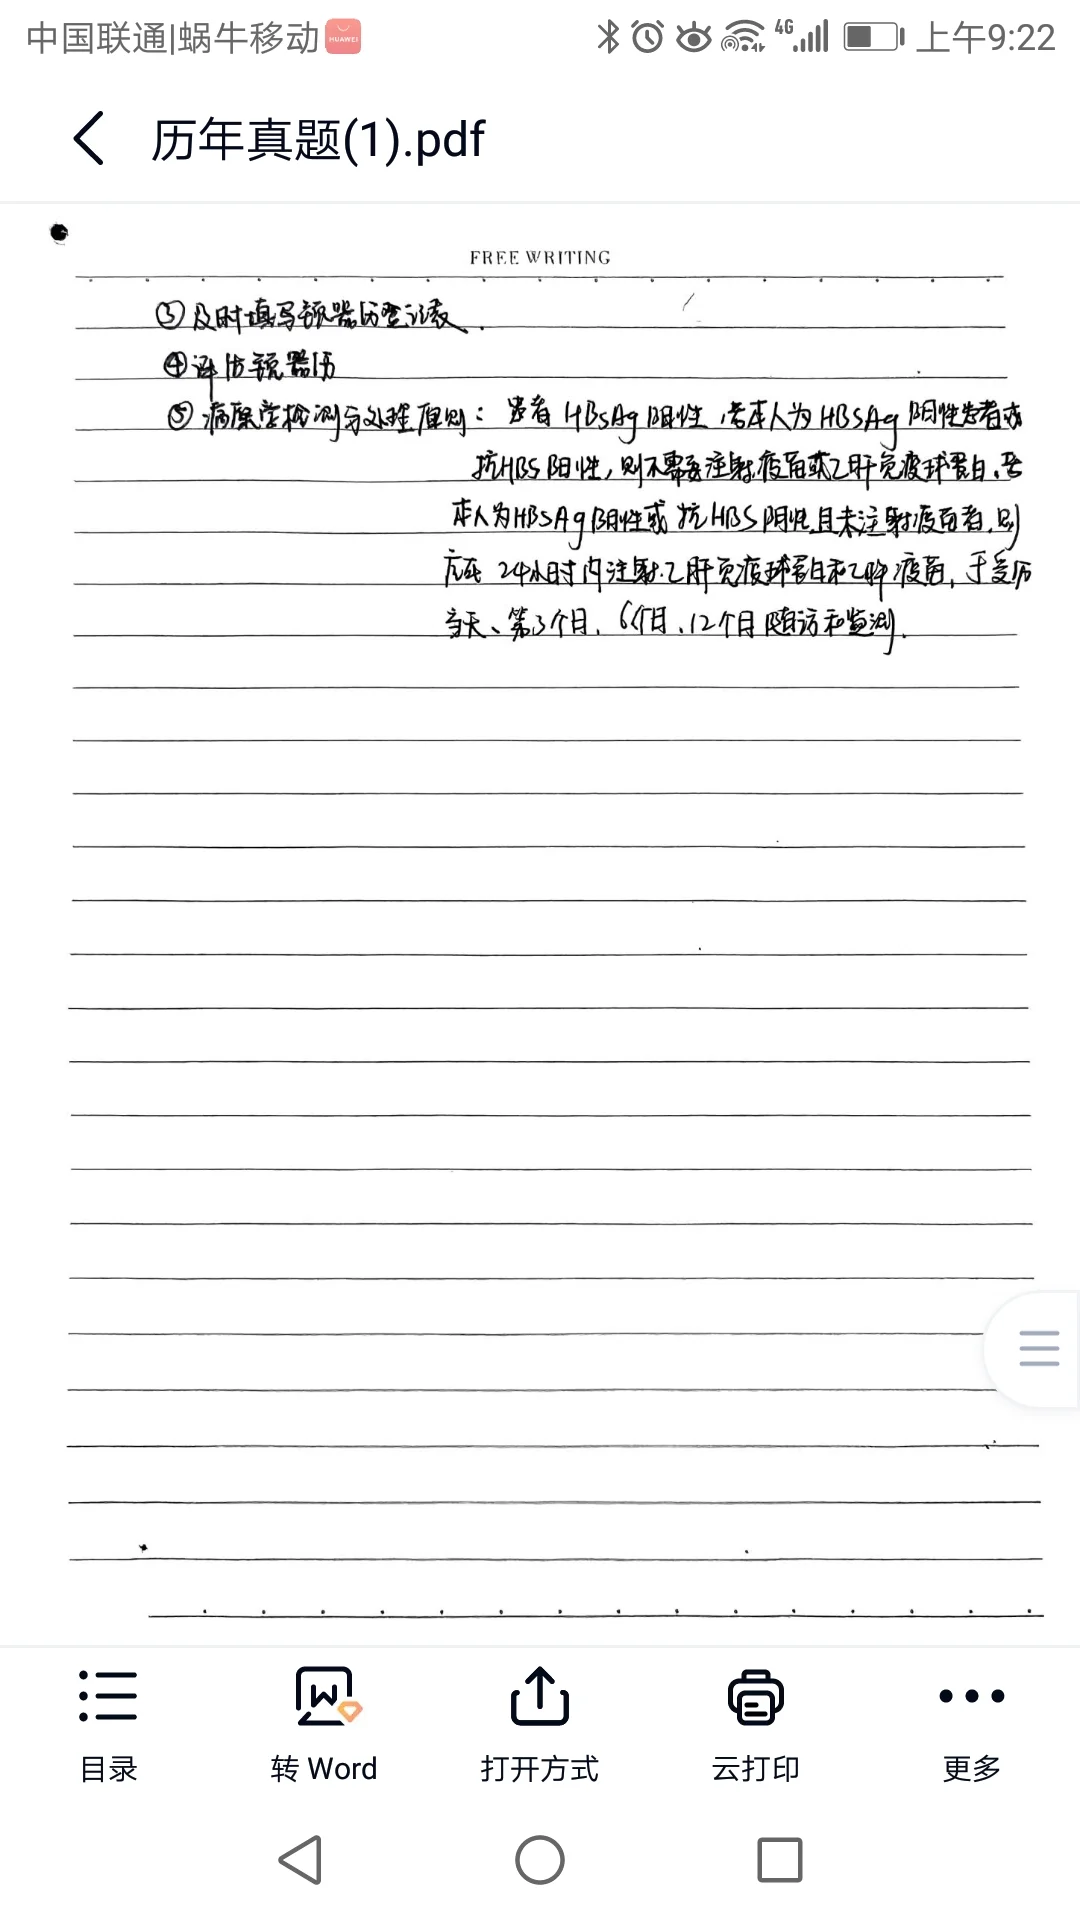 中国联通|蜗牛移动 HUAWEI 4G 上午9:22
历年真题(1).pdf
FREE WRITING
③及时填写锐器伤登记表.
④评估锐器伤
⑤病原学检测与处理原则：患者HBsAg阳性,若本人为HBSAg阳性患者或
抗HBS阳性,则不需要注射疫苗或乙肝免疫球蛋白.若
本人为HBSAg阴性或抗HBS阴性且未注射疫苗者,则
应在24小时内注射乙肝免疫球蛋白和乙肝疫苗,于受伤
当天、第3个月、6个月、12个月随访和监测.
目录
转 Word
打开方式
云打印
更多